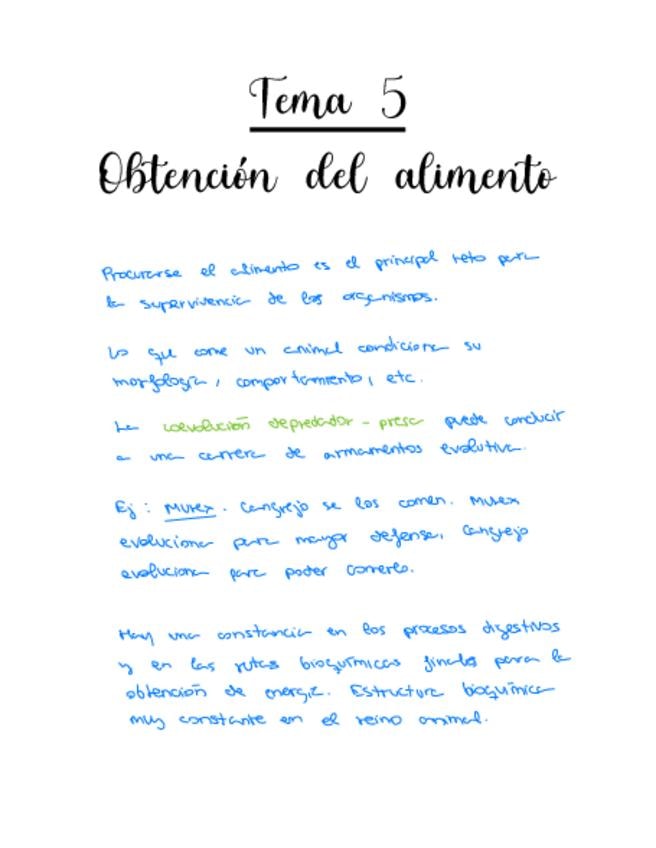 Tema 5
Obtención del alimento
Procurarse el alimento es el principal reto para
la supervivencia de los organismos.
Lo que come un animal condiciona su
morfología, comportamiento, etc.
La coevolución depredador - presa puede conducir
a una carrera de armamentos evolutiva.
Ej: Murex. Cangrejo se los comen. Murex
evoluciona para mayor defensa, cangrejo
evoluciona para poder comerlo.
Hay una constancia en los procesos digestivos
y en las rutas bioquímicas finales para la
obtención de energía. Estructura bioquímica
muy constante en el reino animal.